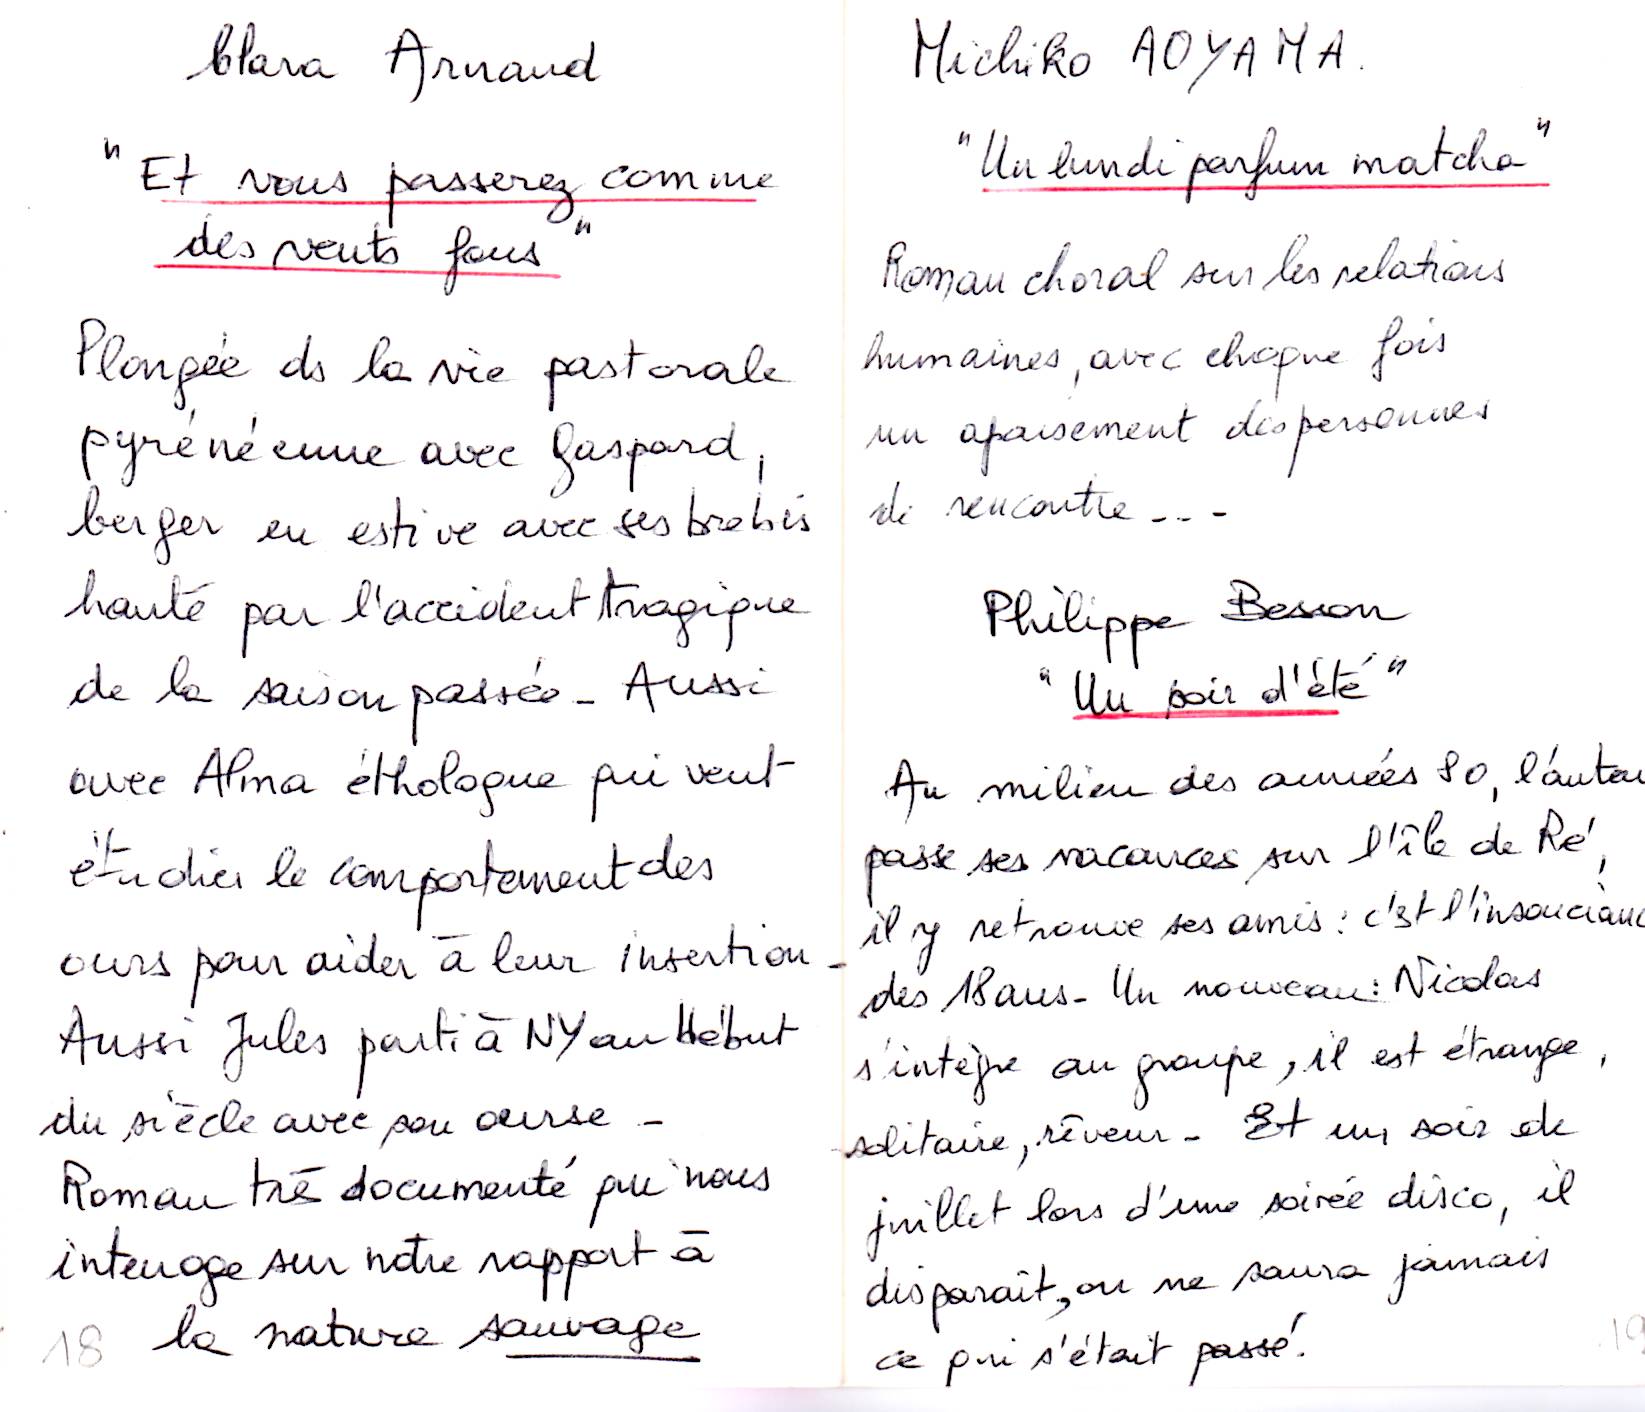 Clara Arnaud
"Et vous passerez comme
des vents fous"
Plongée ds la vie pastorale
pyrénéenne avec Gaspard,
berger en estive avec ses brebis
hanté par l'accident tragique
de la saison passée - Aussi
avec Alma éthologue qui veut
étudier le comportement des
ours pour aider à leur insertion -
Aussi Jules parti à NY au début
du siècle avec son ourse -
Roman très documenté qui nous
interroge sur notre rapport à
la nature sauvage
18
Michiko AOYAMA.
"Un lundi parfum matcha"
Roman choral sur les relations
humaines, avec chaque fois
un apaisement des personnes
de rencontre - - -
Philippe Besson
"Un soir d'été"
Au milieu des années 80, l'auteu
passe ses vacances sur l'île de Ré,
il y retrouve ses amis : c'est l'insoucianc
des 18 ans - Un nouveau : Nicolas
s'intègre au groupe, il est étrange,
solitaire, rêveur - Et un soir de
juillet lors d'une soirée disco, il
disparaît, on ne saura jamais
ce qui s'était passé.
19